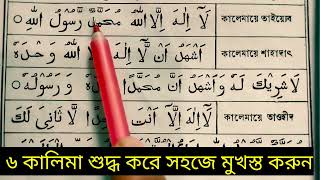 لَآ اِلٰهَ اِلَّا اللّٰهُ مُحَمَّدٌ رَّسُوْلُ اللّٰهِ ○ কালেমায়ে তাইয়্যেব
اَشْهَدُ اَنْ لَّآ اِلٰهَ اِلَّا اللّٰهُ وَحْدَهٗ কালেমায়ে শাহাদাৎ
لَاشَرِيْكَ لَهٗ وَاَشْهَدُ اَنَّ مُحَمَّدًا عَبْدُهٗ وَ رَسُوْلُهٗ ○
لَآ اِلٰهَ اِلَّا اَنْتَ لَّا ثَانِىَ لَكَ কালেমায়ে তাওহীদ
৬ কালিমা শুদ্ধ করে সহজে মুখস্ত করুন